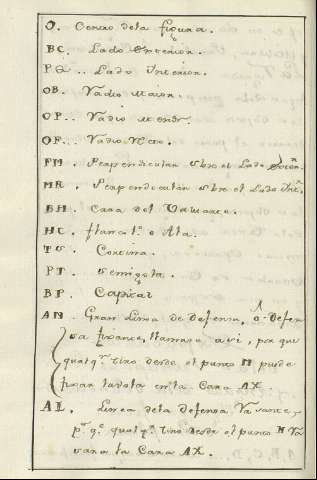 O. Centro dela figura.
BC. Lado Exterior.
PQ.. Lado Interior.
OB. Radio Maior.
OP.. Radio Menor.
OF.. Radio Recto.
FM. Perpendicular sobre el Lado
MR. Perpendicular sobre el Lado Intr.
BH. Cara del Valuarte.
HC. flanco o Ala.
TS. Cortina.
PT. semigola.
BP. Capital
AN. Gran Linea de defensa, o Defen
sa fixante, llamara asi, por que
qualqr. tiro desde el punto M puede
fixar la vola en la Cara AX.
AL. Linea dela defensa Rasante,
pr. qe. qualqr. tiro desde el punto N Ra
sara la Cara AX.